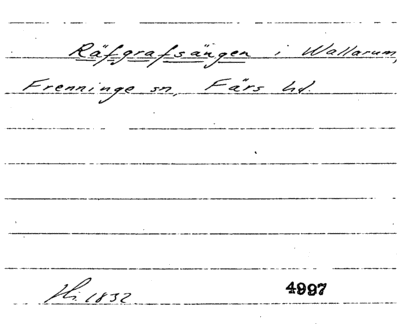 Räfgrafsängen i Wallarum,
Frenninge sn, Färs hd.
Hi. 1832 4997